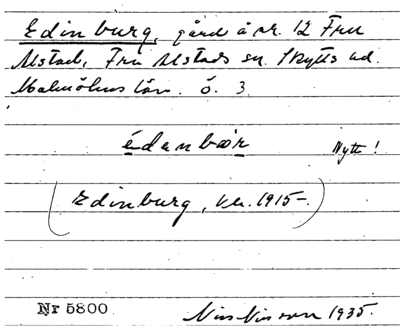 Edinburg, gård å nr. 12 Fru
Alstad, Fru Alstads sn. Skytts hd.
Malmöhus län. ö. 3.
édenbœr Nytt!
(Edinburg, kk. 1915-.)
Nr 5800 Nils Nilsson 1935.